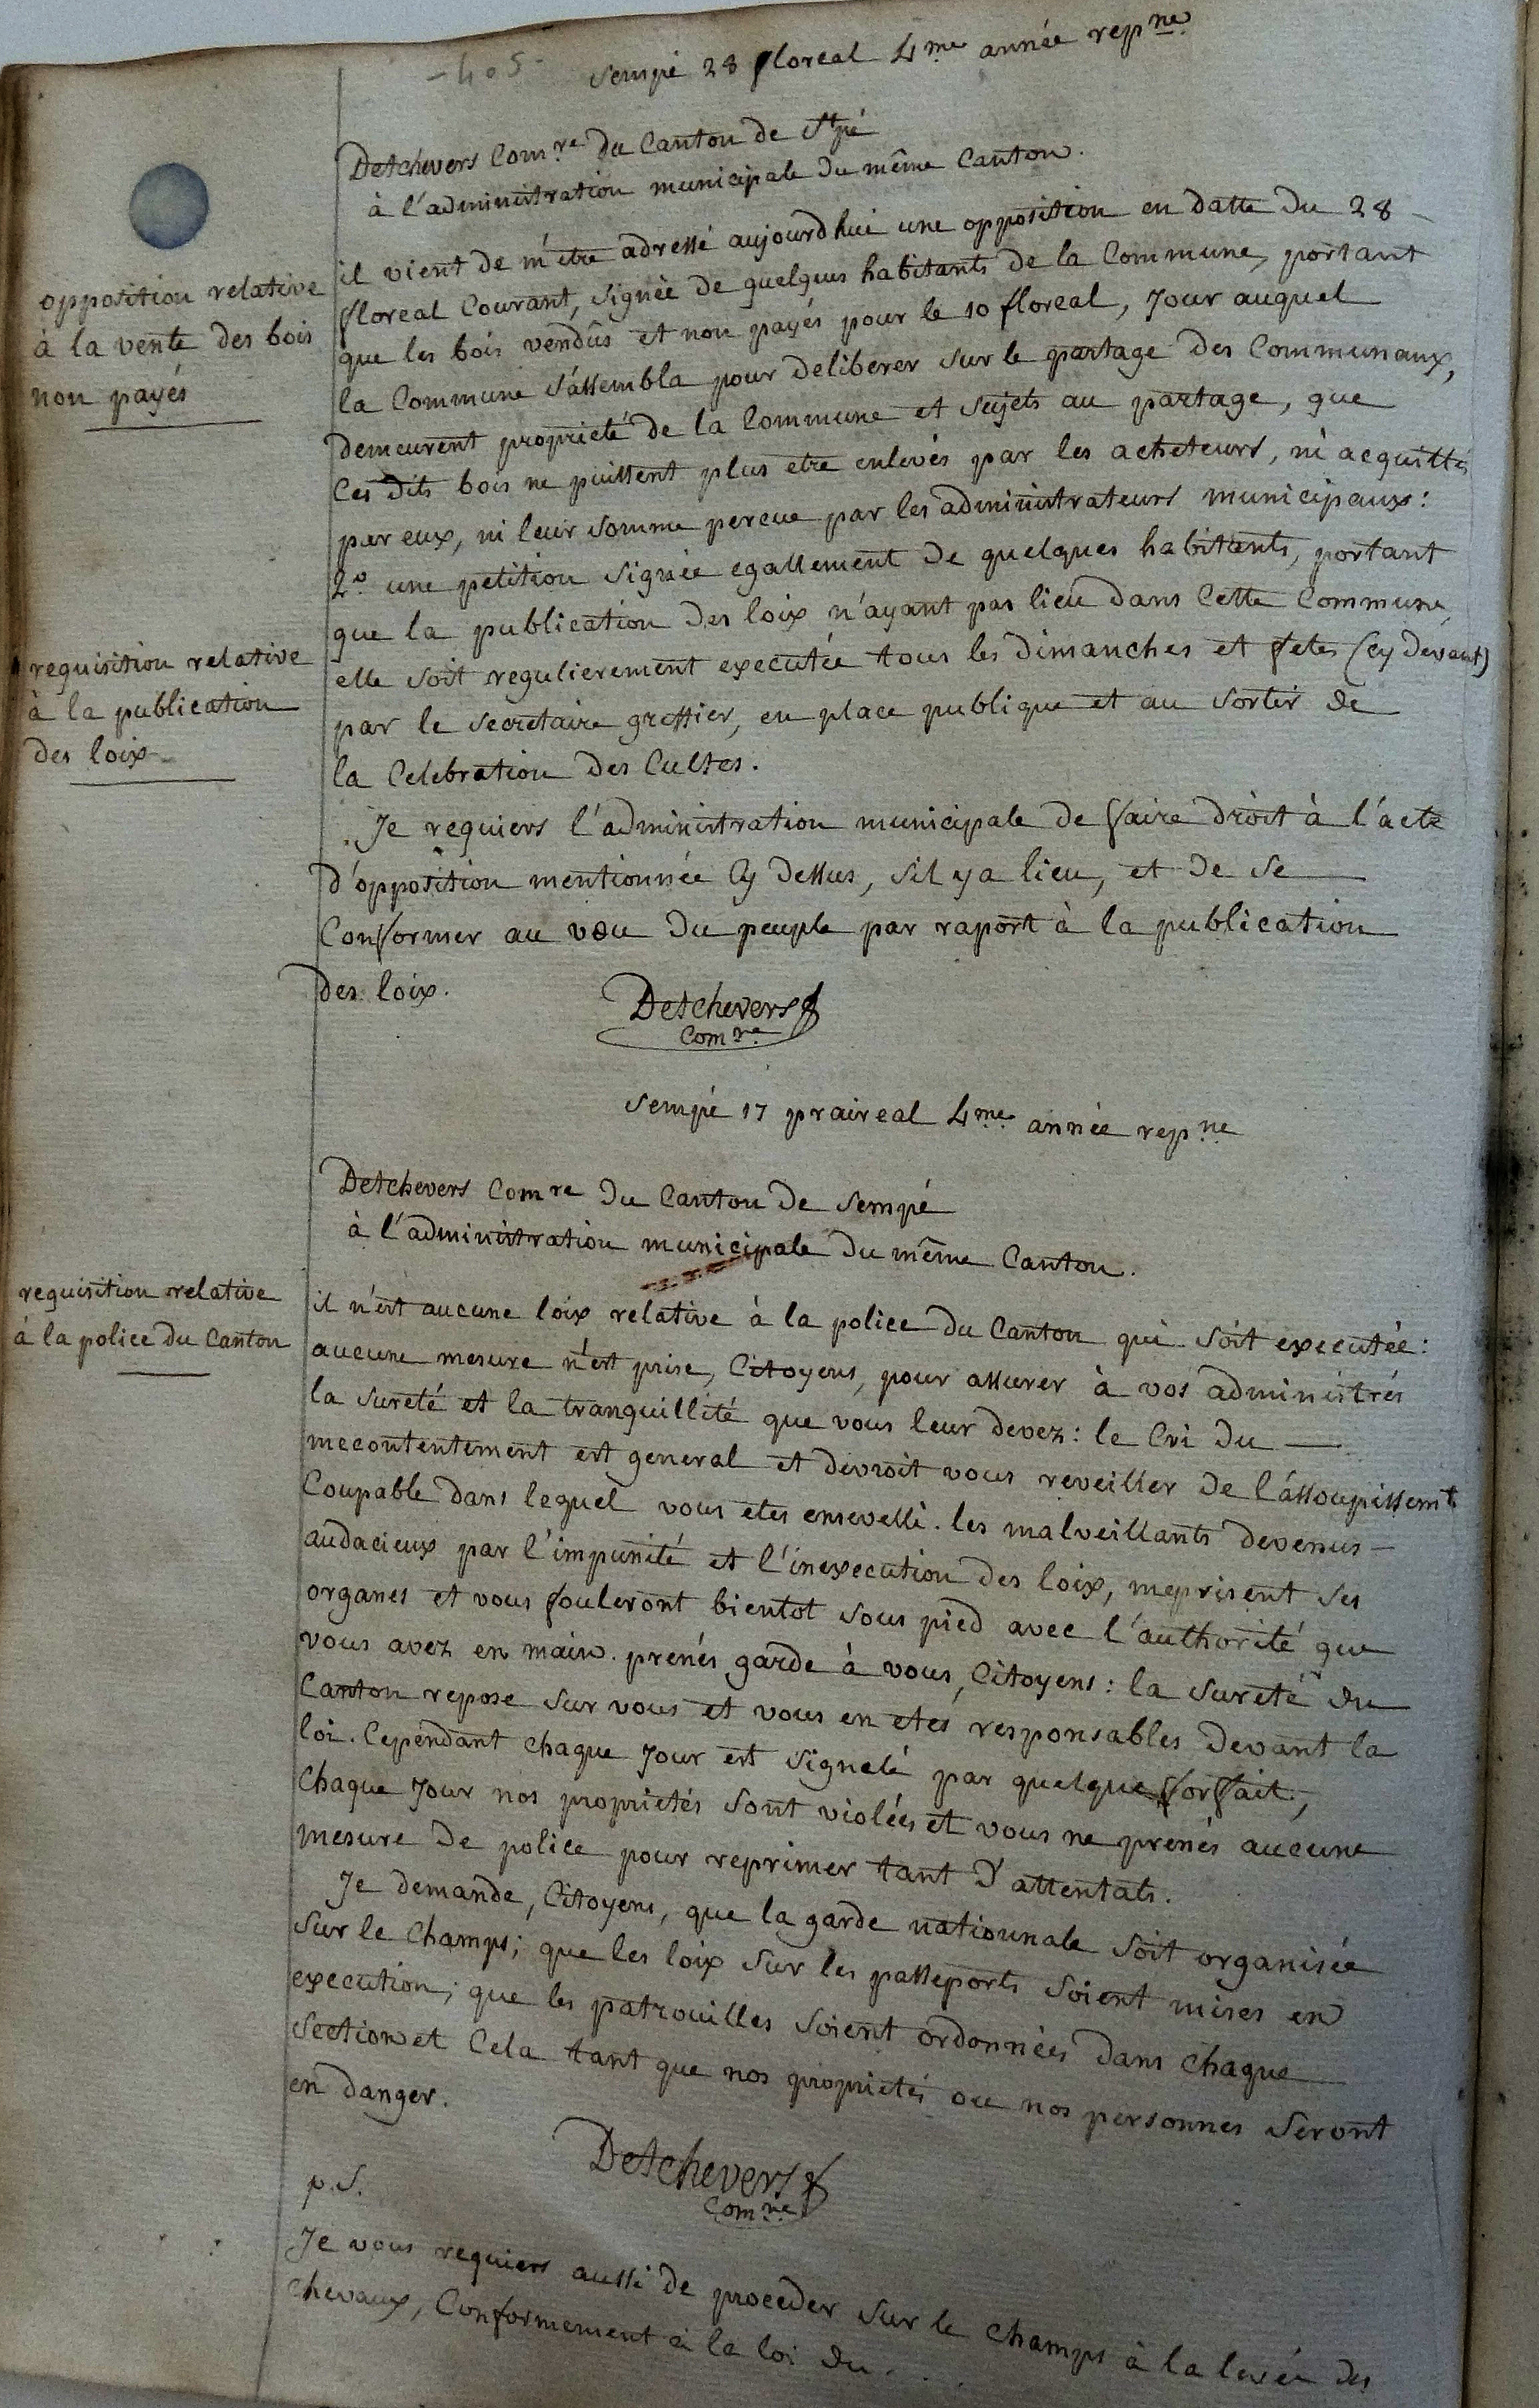 -405-
Sempé 28 floreal 4me année repne
Detchevers Comre du Canton de St pé
à l'administration municipale du même Canton.
opposition relative
à la vente des bois
non payés
il vient de m'être adressé aujourdhui une opposition en datte du 28
floreal Courant, signée de quelques habitants de la Commune, portant
que les bois vendûs et non payés pour le 10 floreal, Jour auquel
la Commune s'assembla pour deliberer sur le partage des Communaux,
demeurent proprieté de la Commune et sujets au partage, que
Ces dits bois ne puissent plus etre enlevés par les acheteurs, ni acquittés
par eux, ni leur somme percue par les administrateurs municipaux:
2o une petition signée egallement de quelques habitants, portant
requisition relative
à la publication
des loix
que la publication des loix n'ayant pas lieu dans Cette Commune,
elle soit regulierement executée tous les dimanches et fetes (cy devant)
par le secretaire greffier, en place publique et au sortir de
la Celebration des Cultes.
Je requiers l'administration municipale de faire droit à l'acte
d'opposition mentionnée Cy dessus, s'il y a lieu, et de se
Conformer au vœu du peuple par raport à la publication
des loix.
Detchevers
Comre
Sempé 17 praireal 4me année repne
Detchevers Comre du Canton de Sempé
à l'administration municipale du même Canton.
requisition relative
à la police du Canton
il n'est aucune loix relative à la police du Canton qui soit executée:
aucune mesure n'est prise, Citoyens, pour assurer à vos administrés
la sureté et la tranquillité que vous leur devez: le Cri du
mecontentement est general et devroit vous reveiller de l'assoupissemt
Coupable dans lequel vous etes ensevelli. les malveillants devenus
audacieux par l'impunité et l'inexecution des loix, meprisent ses
organes et vous fouleront bientot sous pied avec l'authorité que
vous avez en main. prenés garde à vous, Citoyens: la sureté du
Canton repose sur vous et vous en etes responsables devant la
loi. Cependant chaque Jour est signalé par quelque forfait,
Chaque Jour nos proprietés sont violées et vous ne prenés aucune
mesure de police pour reprimer tant d'attentats.
Je demande, Citoyens, que la garde nationnale soit organisée
sur le Champs; que les loix sur les passeports soient mises en
execution; que les patrouilles soient ordonnées dans chaque
Section et Cela tant que nos proprietés ou nos personnes seront
en danger.
Detchevers
Comre
p.S.
Je vous requiers aussi de proceder sur le champs à la levée des
chevaux, Conformement à la loi du . .